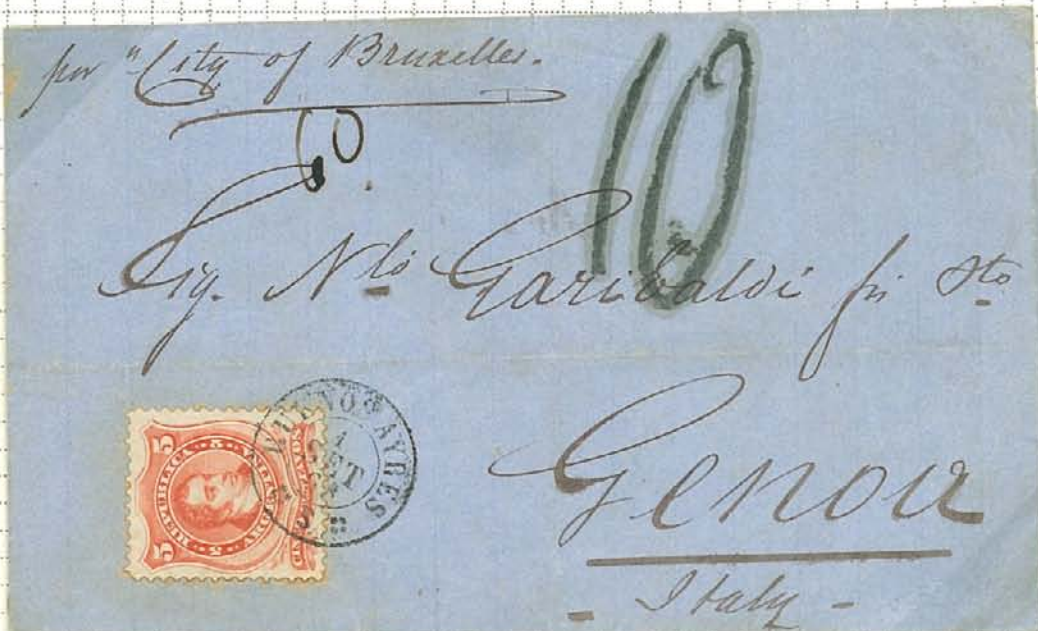 per "City of Bruxelles.
10
60
Sig. N.lo Garibaldi fu Sto
BUENOS AYRES
1
SET
5 REPUBLICA ARGENTINA 5
CENTAVOS
Genova
- Italy -